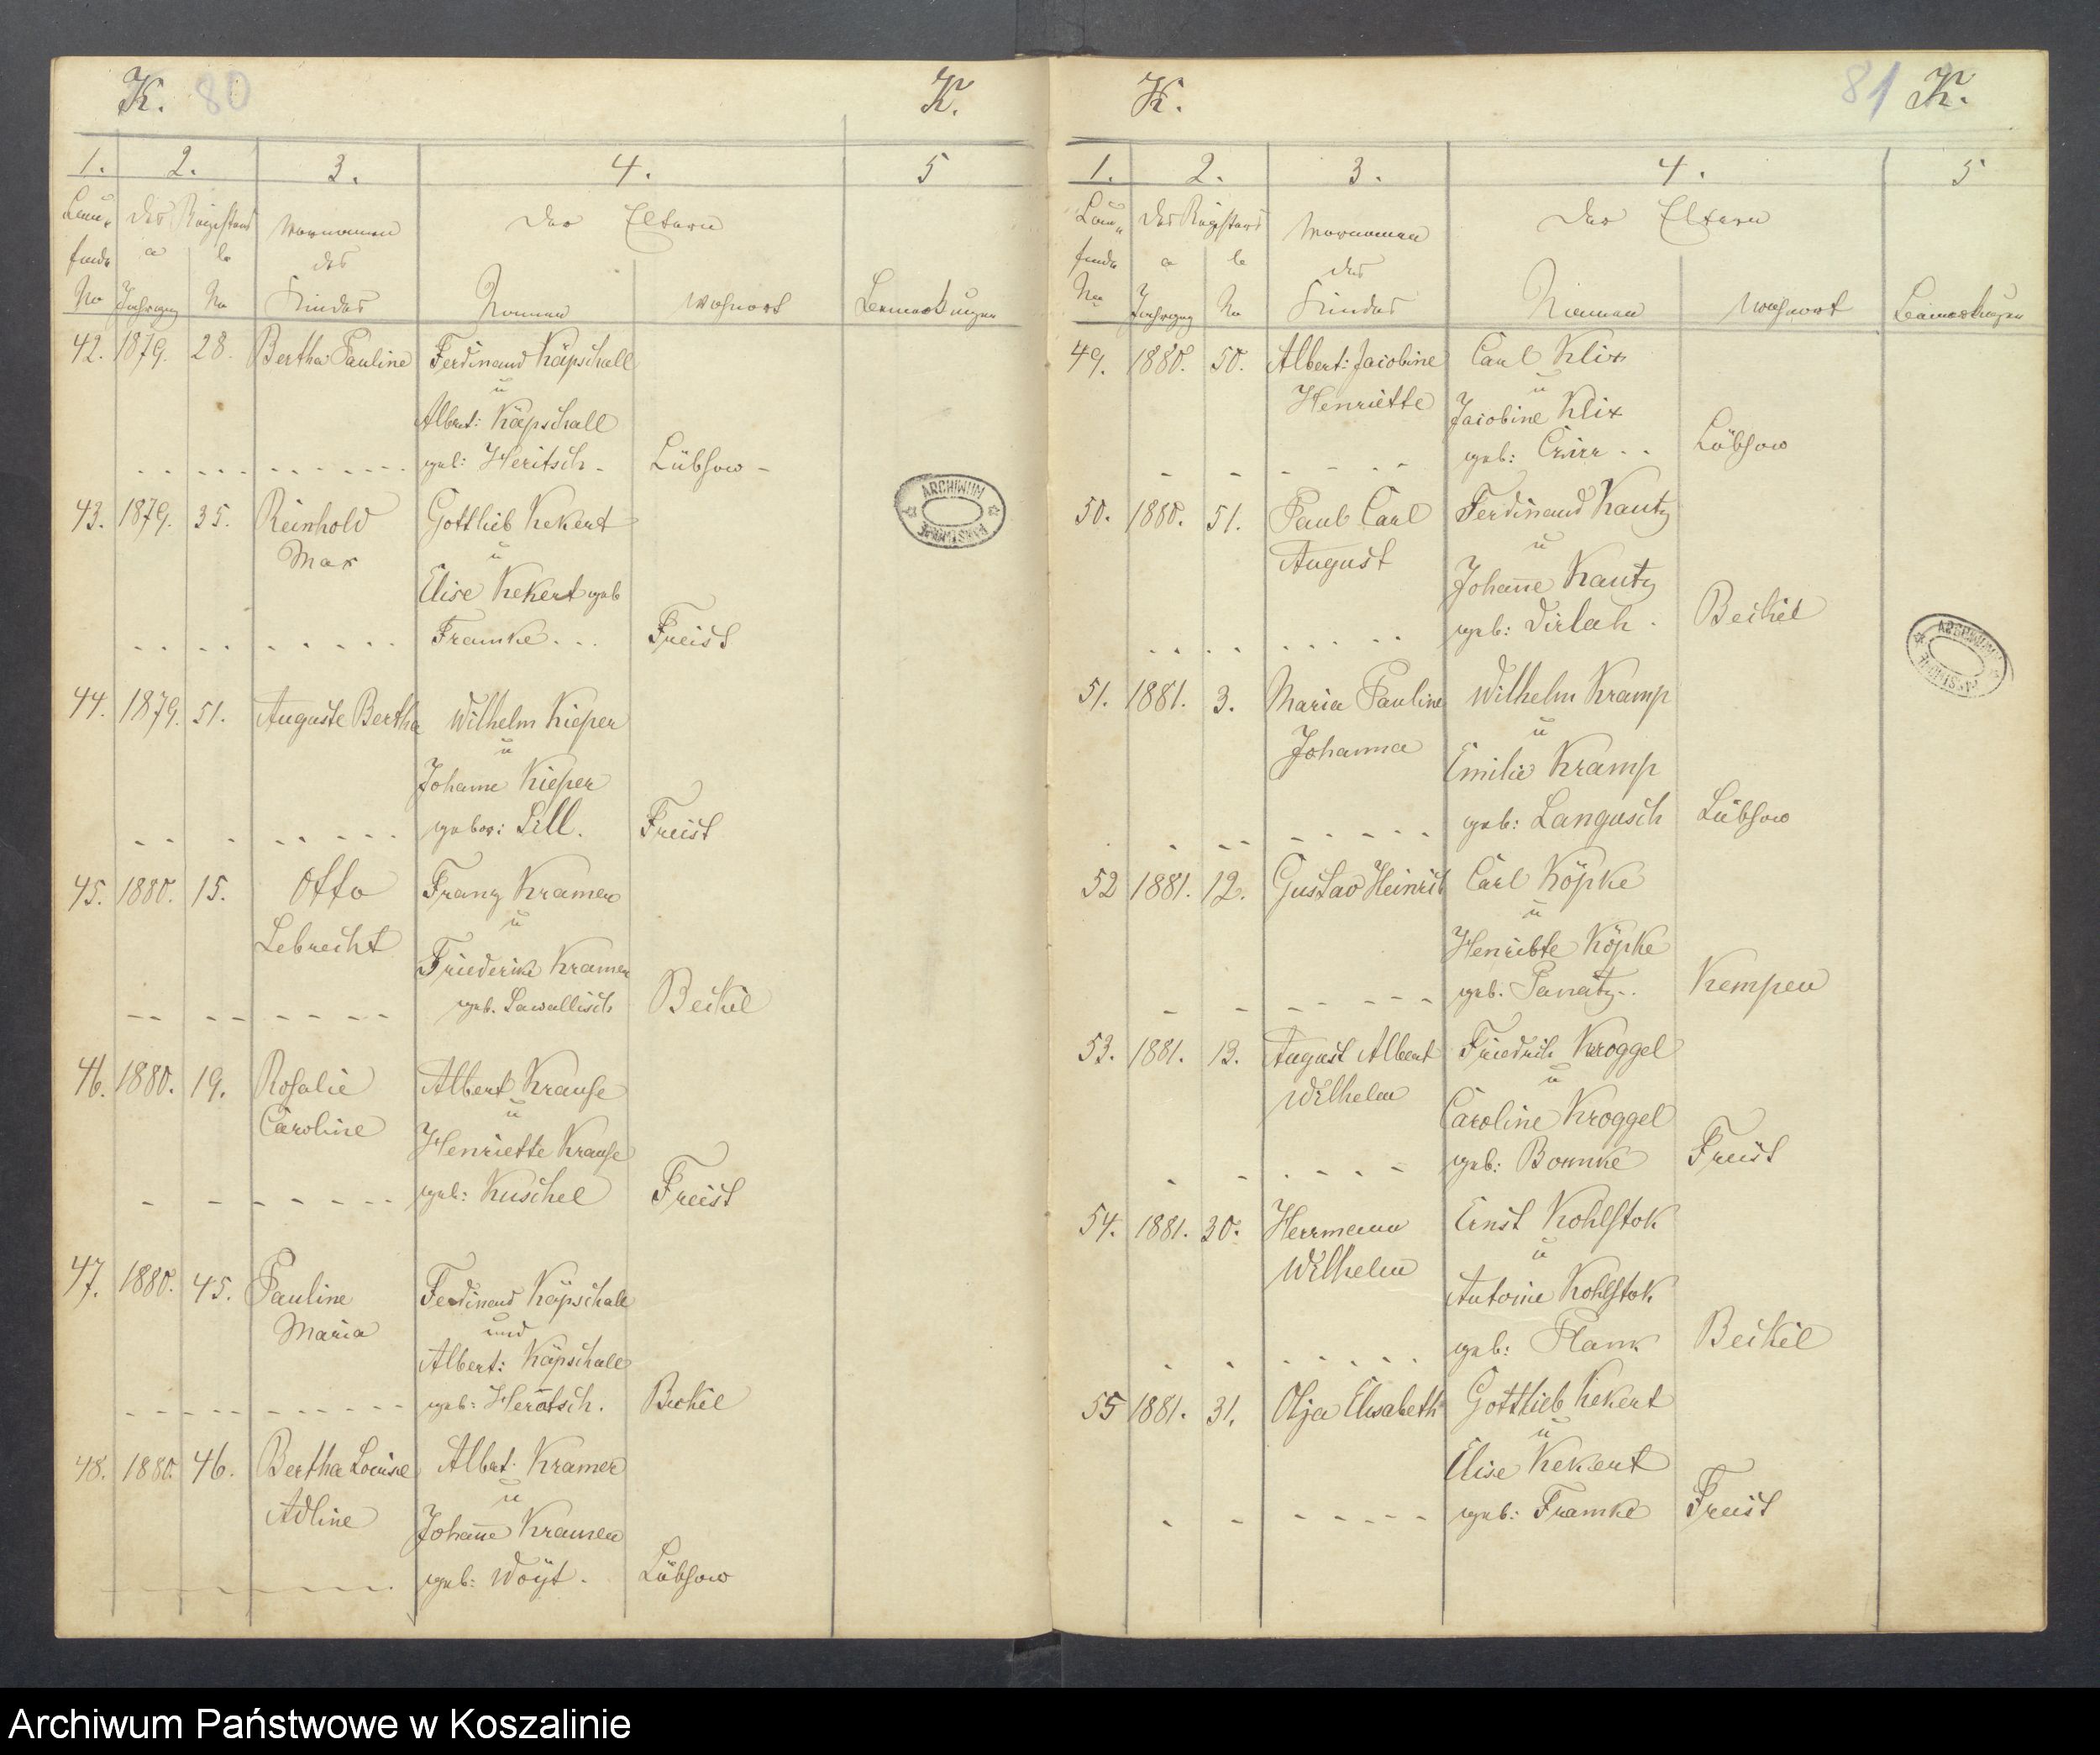 K. 80 K.
1. 2. 3. 4. 5
Lau- des Registers Vornamen der Eltern
fende a b des
No Jahrgang No Kindes Namen Wohnort Bemerkungen
42. 1879. 28. Bertha Pauline Ferdinand Käpschall
u
Albert: Käpschall
geb: Heritsch - Lübsow -
43. 1879. 35. Reinhold Gottlieb Kekert
Max u
Elise Kekert geb
Framke . . . Freist
44. 1879. 51. Auguste Bertha Wilhelm Kieper
u
Johanne Kieper
gebor: Sill. Freist
45. 1880. 15. Otto Franz Kramer
u
Lebrecht Friederike Kramer
geb. Sawallisch Beckel
46. 1880. 19. Rosalie Albert Krause
Caroline u
Henriette Krause
geb: Kuschel Freist
47. 1880. 45. Pauline Ferdinand Käpschall
Maria und
Albert: Käpschall
geb: Heritsch. Beckel
48. 1880. 46. Bertha Louise Albert Kramer
Adline u
Johanne Kramer
geb: Woyt. Lübsow
ARCHIWUM
PAŃSTWOWE
K. 81 K.
1. 2. 3. 4. 5
Lau- des Registers Vornamen der Eltern
fende a b des
No Jahrgang No Kindes Namen Wohnort Bemerkungen
49. 1880. 50. Albert: Jacobine Carl Klix
Henriette u
Jacobine Klix
geb: . . Lübsow
50. 1880. 51. Paul Carl Ferdinand Kautz
August u
Johanne Kautz
geb: Dirlah. Beckel
51. 1881. 3. Maria Pauline Wilhelm Kramp
Johanna u
Emilie Kramp
geb: Langusch Lübsow
52 1881. 12. Gustav Heinrich Carl Köpke
u
Henriette Köpke
geb. Panatz - . Kempen
53. 1881. 13. August Albert Friedrich Kroggel
Wilhelm u
Caroline Kroggel
geb: Bonnke Freist
54. 1881. 30. Herrmann Ernst Kohlstok
Wilhelm u
Antoine Kohlstok
geb: Plank Beckel
55 1881. 31. Olja Elisabeth Gottlieb Kekert
u
Elise Kekert
geb: Framke Freist
ARCHIWUM
PAŃSTWOWE
Archiwum Państwowe w Koszalinie